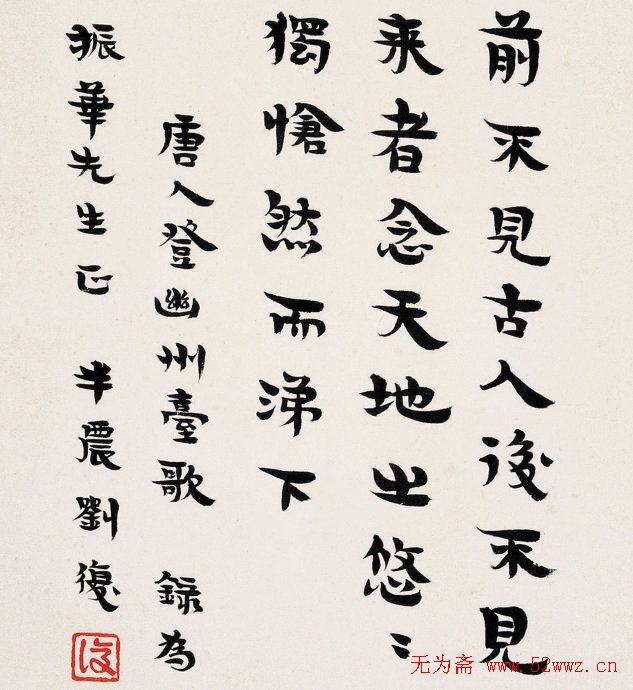 前不見古人後不見
来者念天地之悠〻
獨愴然而涕下
唐人登幽州臺歌 錄為
振華先生正 半農劉復
復
无为斋 www.52wwz.cn